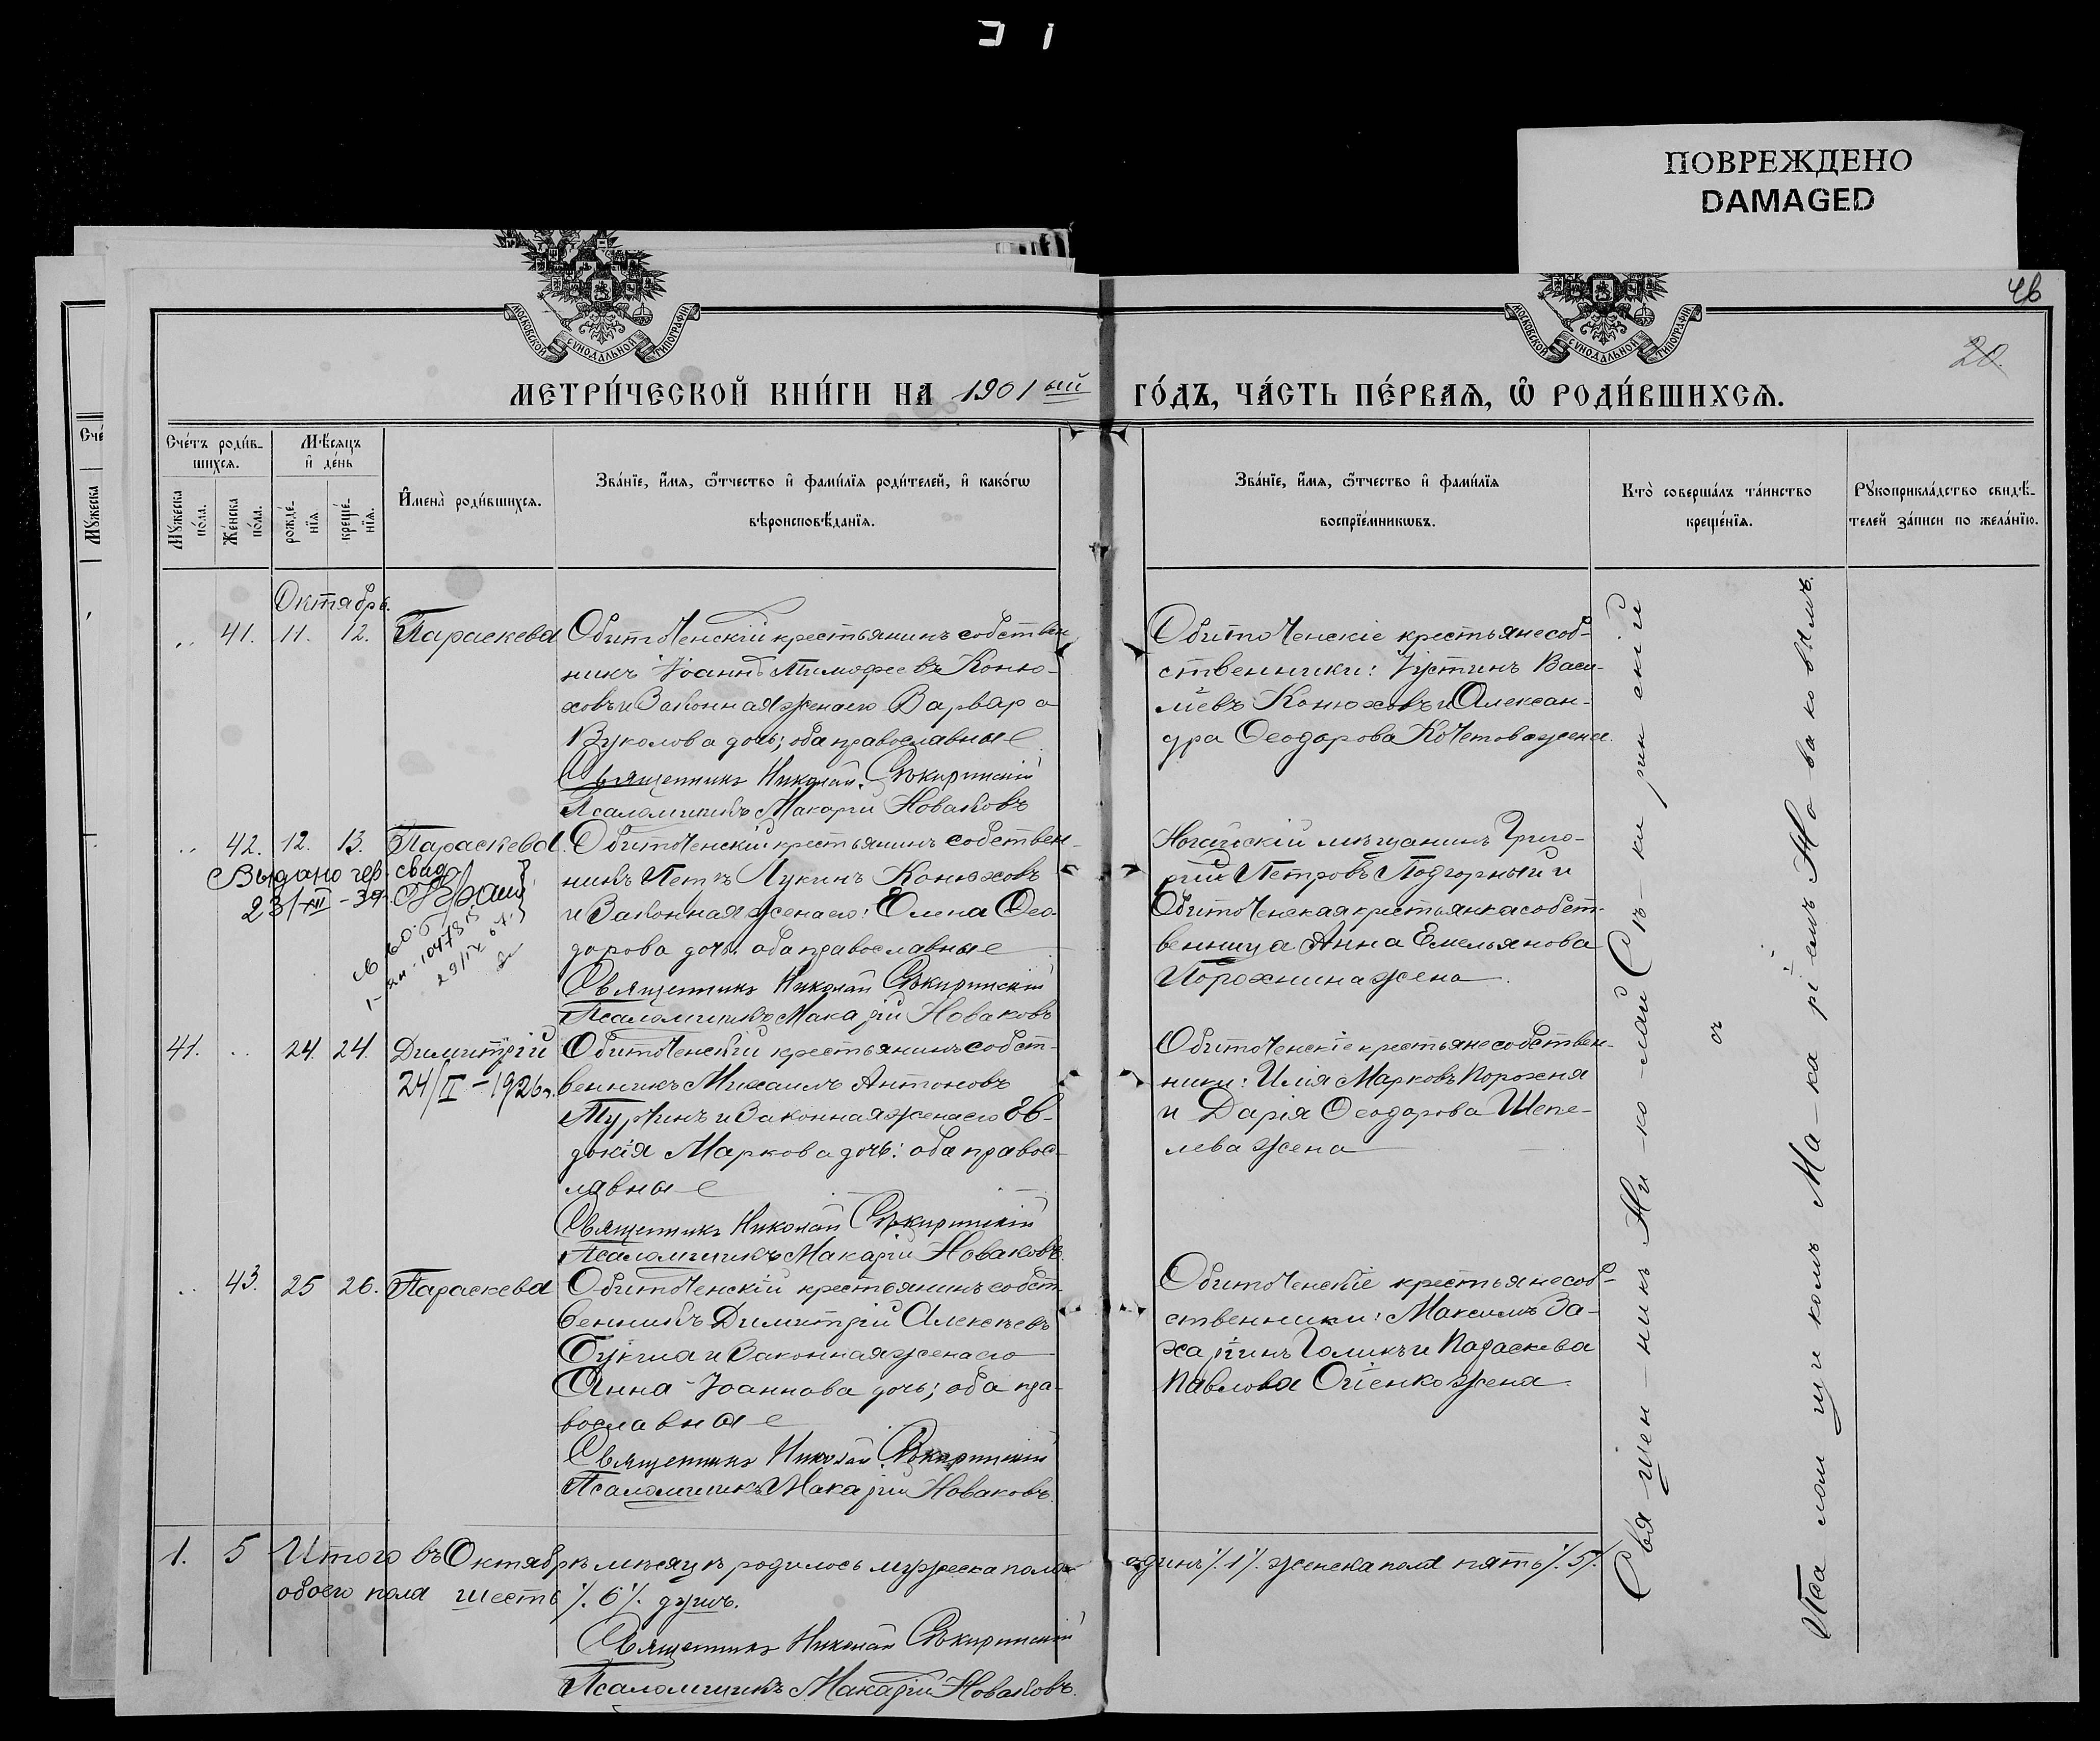 ПОВРЕЖДЕНО
DAMAGED
46
20.
МОСКОВСКОЙ СѴНОДАЛЬНОЙ ТИПОГРАФІИ
МОСКОВСКОЙ СѴНОДАЛЬНОЙ ТИПОГРАФІИ
МЕТРИ́ЧЕСКОЙ КНИ́ГИ НА 1901ый ГО́ДЪ, ЧА́СТЬ ПЕ́РВАѦ, Ѡ РОДИ́ВШИХСѦ.
Сче́тъ роди́в-
шихсѧ.
Мѣ́сѧцъ
и҆ де́нь
Мꙋ́жеска
по́ла.
Же́нска
по́ла.
рожде́-
нїѧ
креще́-
нїѧ.
И҆мена̀ роди́вшихсѧ.
Зва́нїе, и҆́мѧ, ѻ҆́тчество и҆ фами́лїѧ роди́телей, и҆ како́гѡ
вѣроисповѣ́данїѧ.
Зва́нїе, и҆́мѧ, ѻ҆́тчество и҆ фами́лїѧ
воспрїе́мникѡвъ.
Кто̀ соверша́лъ та́инство
креще́нїѧ.
Рꙋкоприкла́дство свидѣ́-
телей за́писи по жела́нїю.
Октябрь.
41. 11. 12. Параскева
Обиточенскій крестьянинъ собствен
никъ Іоаннъ Тимофеевъ Коню-
ховъ и Законная жена его Варвара
Вуколова дочь; оба православные
Священникъ Николай Сѣкиринскій
Псаломщикъ Макарій Новаковъ
Обиточенскіе крестьяне соб-
ственники: Іустинъ Васи-
ліевъ Конюховъ и Алексан-
дра Ѳеодорова Кочетова жена.
42. 12. 13. Параскева
Выдано
свид
23/XII - 39.
Обиточенскій крестьянинъ собствен-
никъ Петръ Лукинъ Конюховъ
и Законная жена его: Елена Ѳео-
дорова дочь: оба православные
Священникъ Николай Сѣкиринскій
Псаломщикъ Макарій Новаковъ
Ногайскій мѣщанинъ Григо-
рій Петровъ Подгорный и
Обиточенская крестьянка собст-
венница Анна Емельянова
Порохнина жена.
41. 24. 24. Димитрій
24/II - 1926г.
Обиточенскій крестьянинъ собст-
венникъ Михаилъ Антоновъ
и Законная жена его Ев-
докія Маркова дочь: оба правос-
лавные
Священникъ Николай Сѣкиринскій
Псаломщикъ Макарій Новаковъ.
Обиточенскіе крестьяне собствен-
ники: Илія Марковъ Порохня
и Дарія Ѳеодорова Шепе-
лева жена
43. 25 26. Параскева
Обиточенскій крестьянинъ собст-
венникъ Димитрій Алексѣевъ
и Законная жена его
Анна Іоаннова дочь; оба пра-
вославные
Священникъ Николай Сѣкиринскій
Псаломщикъ Макарій Новаковъ.
Обиточенскіе крестьяне соб-
ственники: Максимъ За-
харіинъ Голикъ и Параскева
Павлова жена.
Свя-щен-никъ Ни-ко-лай Сѣ-ки рин скій
съ
Пса лом щи комъ Ма-ка рі емъ Но ва ко вымъ.
1. 5 Итого въ Октябрѣ мѣсяцѣ родилось мужеска пола одинъ /.1/. женска пола пять /.5/.
обоего пола шесть /.6/. душъ.
Священникъ Николай Сѣкиринскій
Псаломщикъ Макарій Новаковъ.